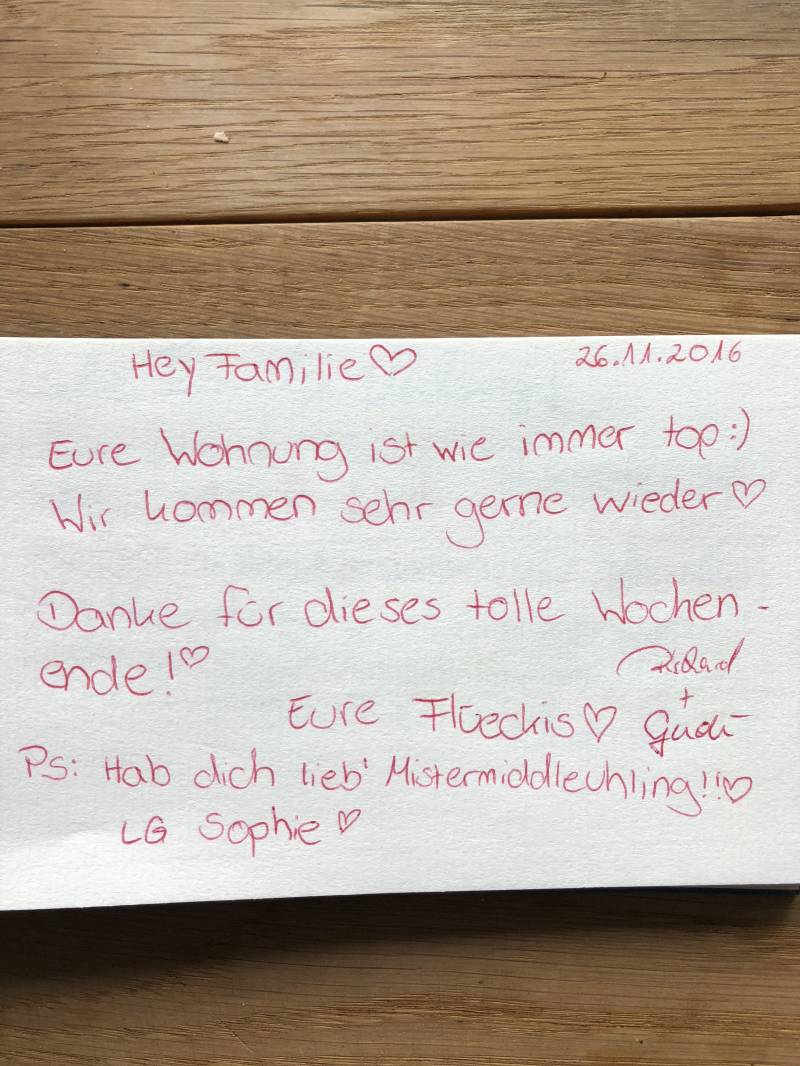 Hey Familie ♡ 26.11.2016
Eure Wohnung ist wie immer top :)
Wir kommen sehr gerne wieder ♡
Danke für dieses tolle Wochen-
ende! ♡
Richard
+
Eure Flüeckis ♡
PS: Hab dich lieb' Mistermiddleuhling!! ♡
LG Sophie ♡